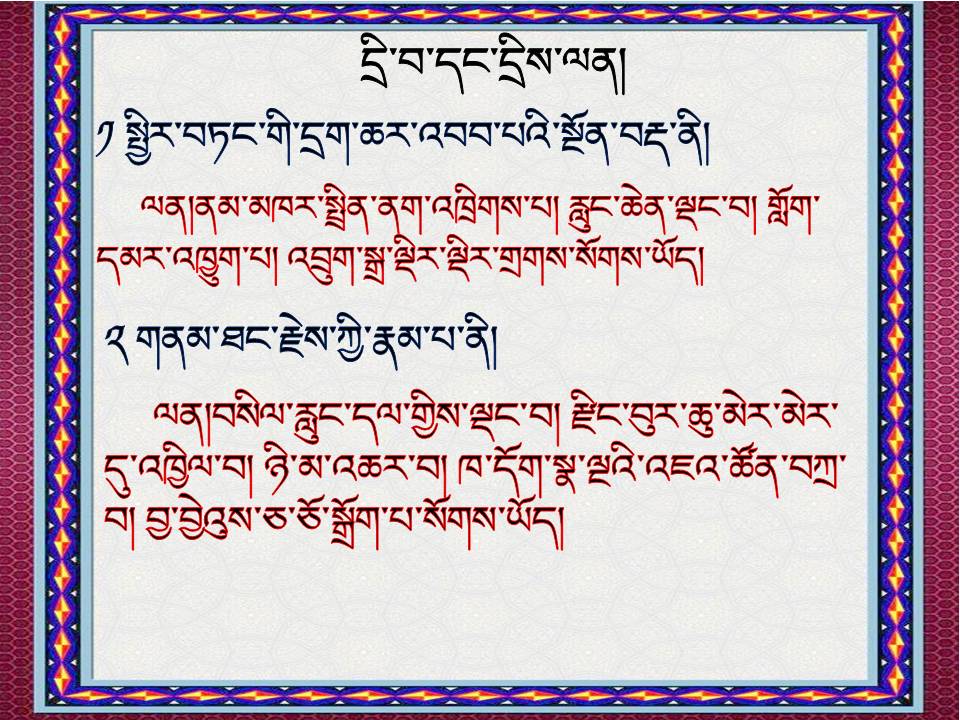 དྲི་བ་དང་དྲིས་ལན།
༡ སྤྱིར་བཏང་གི་དྲག་ཆར་འབབ་པའི་སྔོན་བརྡ་ནི།
ལན།ནམ་མཁར་སྤྲིན་ནག་འཁྲིགས་པ། རླུང་ཆེན་ལྡང་བ། གློག་
དམར་འཁྱུག་པ། འབྲུག་སྒྲ་ལྡིར་ལྡིར་གྲགས་སོགས་ཡོད།
༢ གནམ་ཐང་རྗེས་ཀྱི་རྣམ་པ་ནི།
ལན།བསིལ་རླུང་དལ་གྱིས་ལྡང་བ། རྫིང་བུར་ཆུ་མེར་མེར་
དུ་འཁྱིལ་བ། ཉི་མ་འཆར་བ། ཁ་དོག་སྣ་ལྔའི་འཇའ་ཚོན་བཀྲ་
བ། བྱ་བྱེའུས་ཅ་ཅོ་སྒྲོག་པ་སོགས་ཡོད།